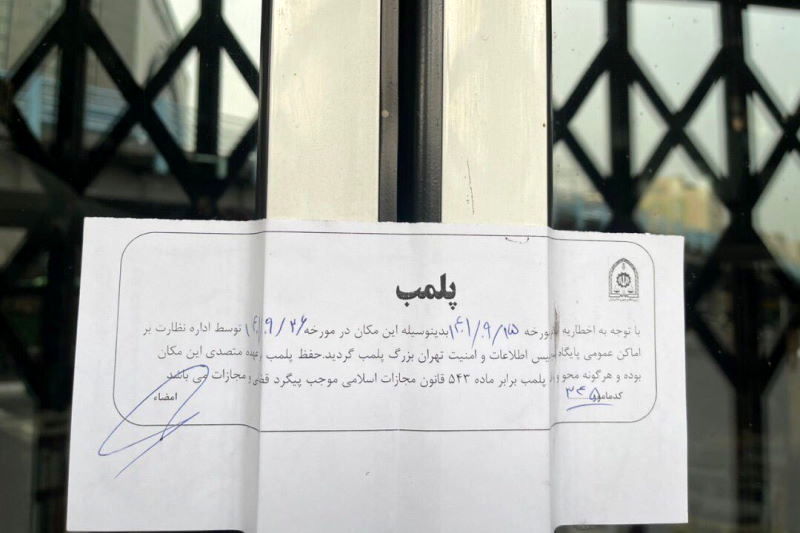 پلمب
با توجه به اخطاریه مورخه ۱۴۰۱/۹/۲۵ بدینوسیله این مکان در مورخه ۱۴۰۱/۹/۲۶ توسط اداره نظارت بر
اماکن عمومی پایگاه پلیس اطلاعات و امنیت تهران بزرگ پلمب گردید.حفظ پلمب بعهده متصدی این مکان
بوده و هرگونه محو پلمب برابر ماده ۵۴۳ قانون مجازات اسلامی موجب پیگرد قضی و مجازات می باشد
کدمامور
امضاء